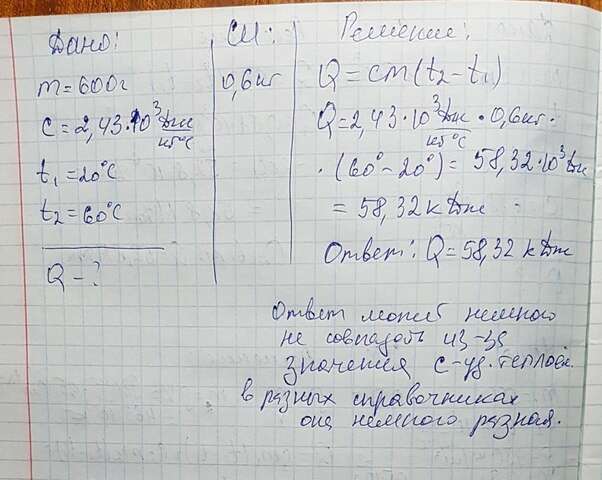 Дано:
m=600г
c=2,43·10³ Дж/кг°C
t₁=20°C
t₂=60°C
Q-?
СИ:
0,6кг
Решение:
Q=cm(t₂-t₁)
Q=2,43·10³ Дж/кг°C · 0,6кг·
·(60°-20°)=58,32·10³Дж
=58,32кДж
Ответ: Q=58,32 кДж
Ответ может немного
не совпадать из-за
значения c-уд. теплоем.
в разных справочниках
она немного разная.